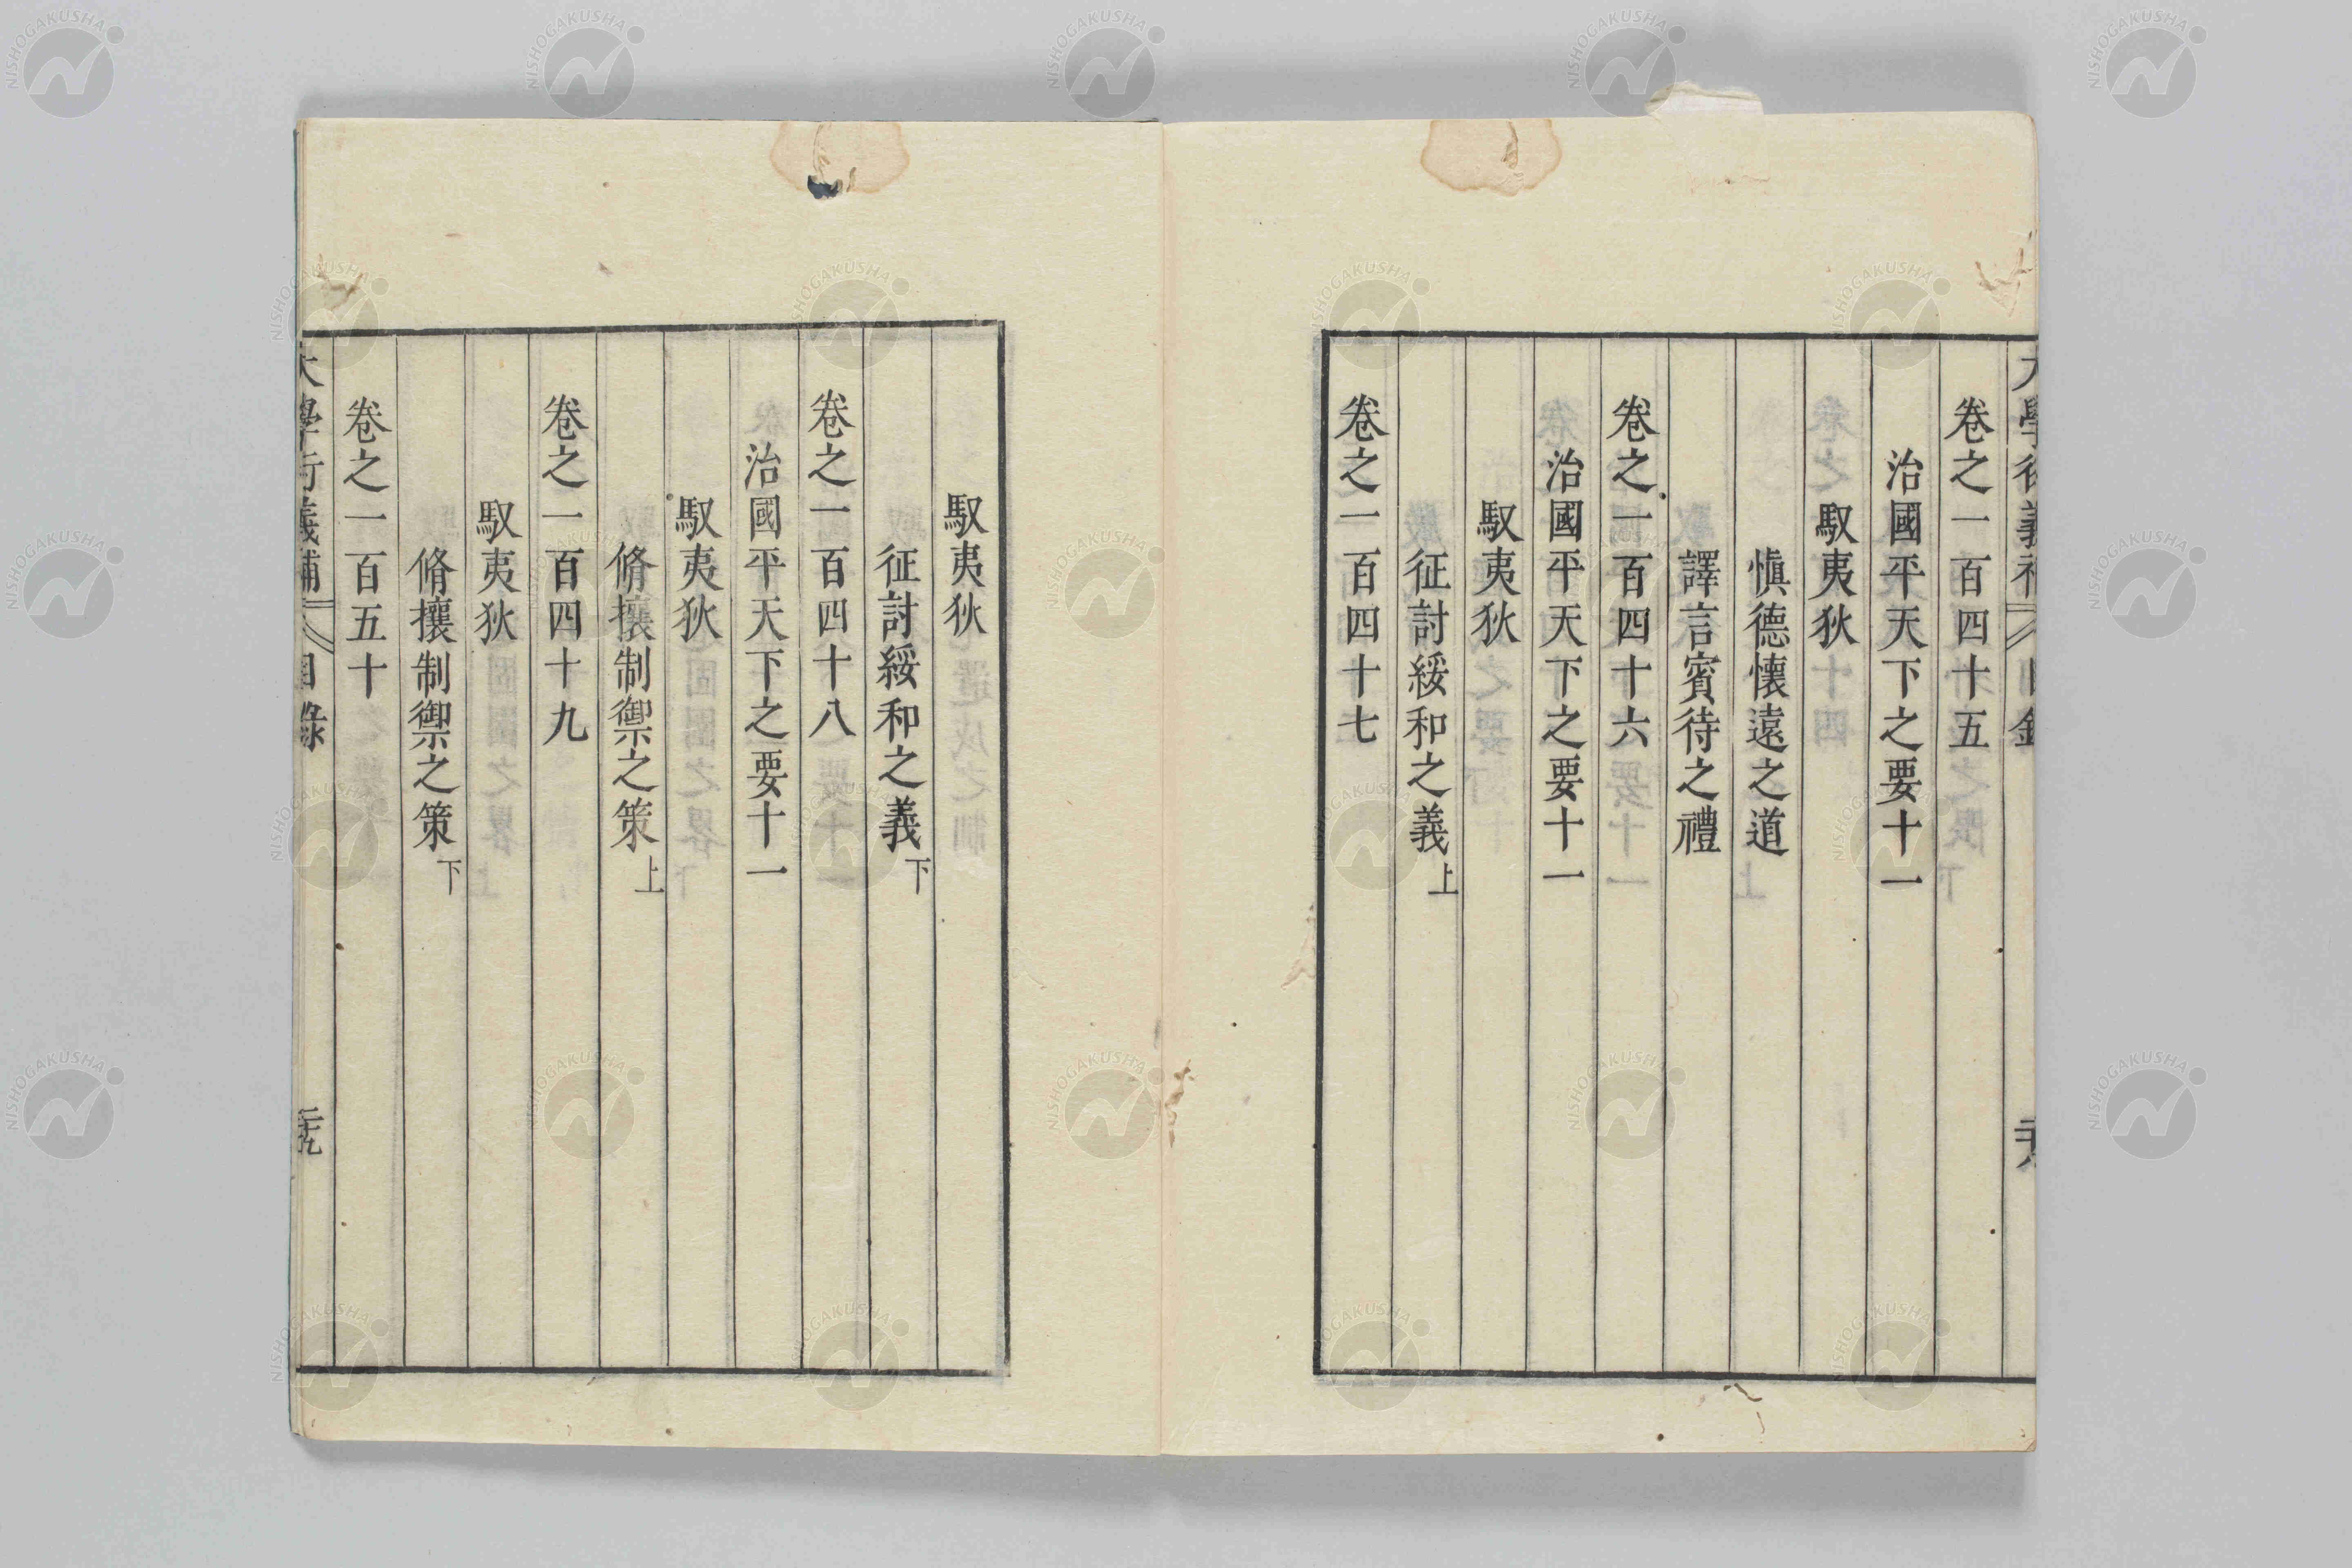 大學衍義補 目錄
卷之一百四十五
治國平天下之要十一
馭夷狄
愼德懷遠之道
譯言賓待之禮
卷之一百四十六
治國平天下之要十一
馭夷狄
征討綏和之義上
卷之一百四十七
馭夷狄
征討綏和之義下
卷之一百四十八
治國平天下之要十一
馭夷狄
脩攘制禦之策上
卷之一百四十九
馭夷狄
脩攘制禦之策下
卷之一百五十
大學衍義補 目錄
NISHOGAKUSHA